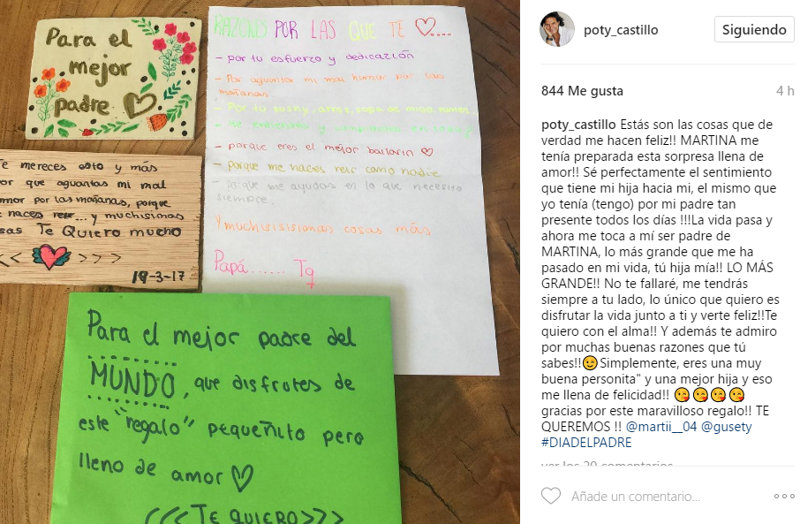 Para el
mejor
padre
Te mereces esto y más
por que aguantas mi mal
humor por las mañanas, porque
me haces reir... y muchisimas
cosas Te Quiero mucho
<< >>>
19-3-17
RAZONES POR LAS QUE TE ♡....
- por tu esfuerzo y dedicación
- Por aguantar mi mal humor por las
mañanas.
- Por tu
- porque eres el mejor bailarin ♡
- porque me haces reir como nadie
- porque me ayudas en lo que necesito
siempre.
Y muchisisisimas cosas más
Papá...... Tq
Para el mejor padre del
MUNDO, que disfrutes de
este "regalo" pequeñito pero
lleno de amor ♡
<<<TE QUIERO>>>
poty_castillo
Siguiendo
844 Me gusta
4 h
poty_castillo Estás son las cosas que de
verdad me hacen feliz!! MARTINA me
tenía preparada esta sorpresa llena de
amor!! Sé perfectamente el sentimiento
que tiene mi hija hacia mi, el mismo que
yo tenía (tengo) por mi padre tan
presente todos los días !!!La vida pasa y
ahora me toca a mí ser padre de
MARTINA, lo más grande que me ha
pasado en mi vida, tú hija mía!! LO MÁS
GRANDE!! No te fallaré, me tendrás
siempre a tu lado, lo único que quiero es
disfrutar la vida junto a ti y verte feliz!!Te
quiero con el alma!! Y además te admiro
por muchas buenas razones que tú
sabes!!😉Simplemente, eres una muy
buena personita" y una mejor hija y eso
me llena de felicidad!! 😘😘😘😘
gracias por este maravilloso regalo!! TE
QUEREMOS !! @martii__04 @gusety
#DIADELPADRE
ver los 20 comentarios
Añade un comentario...